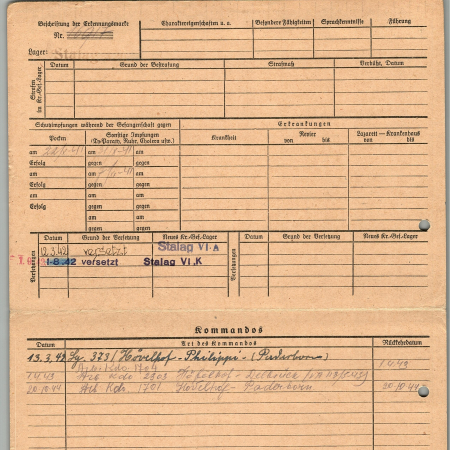 Beschriftung der Erkennungsmarke
Nr.
Lager: Stalag
Charaktereigenschaften u. a.
Besondere Fähigkeiten
Sprachkenntnisse
Führung
Strafen im Kr.-Gef.-Lager
Datum
Grund der Bestrafung
Strafmaß
Verbüßt, Datum
Schutzimpfungen während der Gefangenschaft gegen
Erkrankungen
Pocken
Sonstige Impfungen (Ty-Paraty, Ruhr, Cholera usw.)
Krankheit
Revier
von bis
Lazarett — Krankenhaus
von bis
am am am
Erfolg gegen gegen
am am am
Erfolg gegen gegen
am am am
Erfolg gegen gegen
am am am
Erfolg gegen gegen
am am
gegen gegen
Versetzungen
Datum Grund der Versetzung Neues Kr.-Gef.-Lager
12.3.42 versetzt Stalag VI.A
1-8.42 versetzt Stalag VI.K
Versetzungen
Datum Grund der Versetzung Neues Kr.-Gef.-Lager
Kommandos
Datum Art des Kommandos Rückkehrdatum
13.3.42 Lg. 373 / Hövelhof - Philippi - (Paderborn)
1.4.43
1.4.43 Arb Kdo 2903
20.10.44 Arb Kdo. 1701 Hövelhof - Paderborn 20.10.44